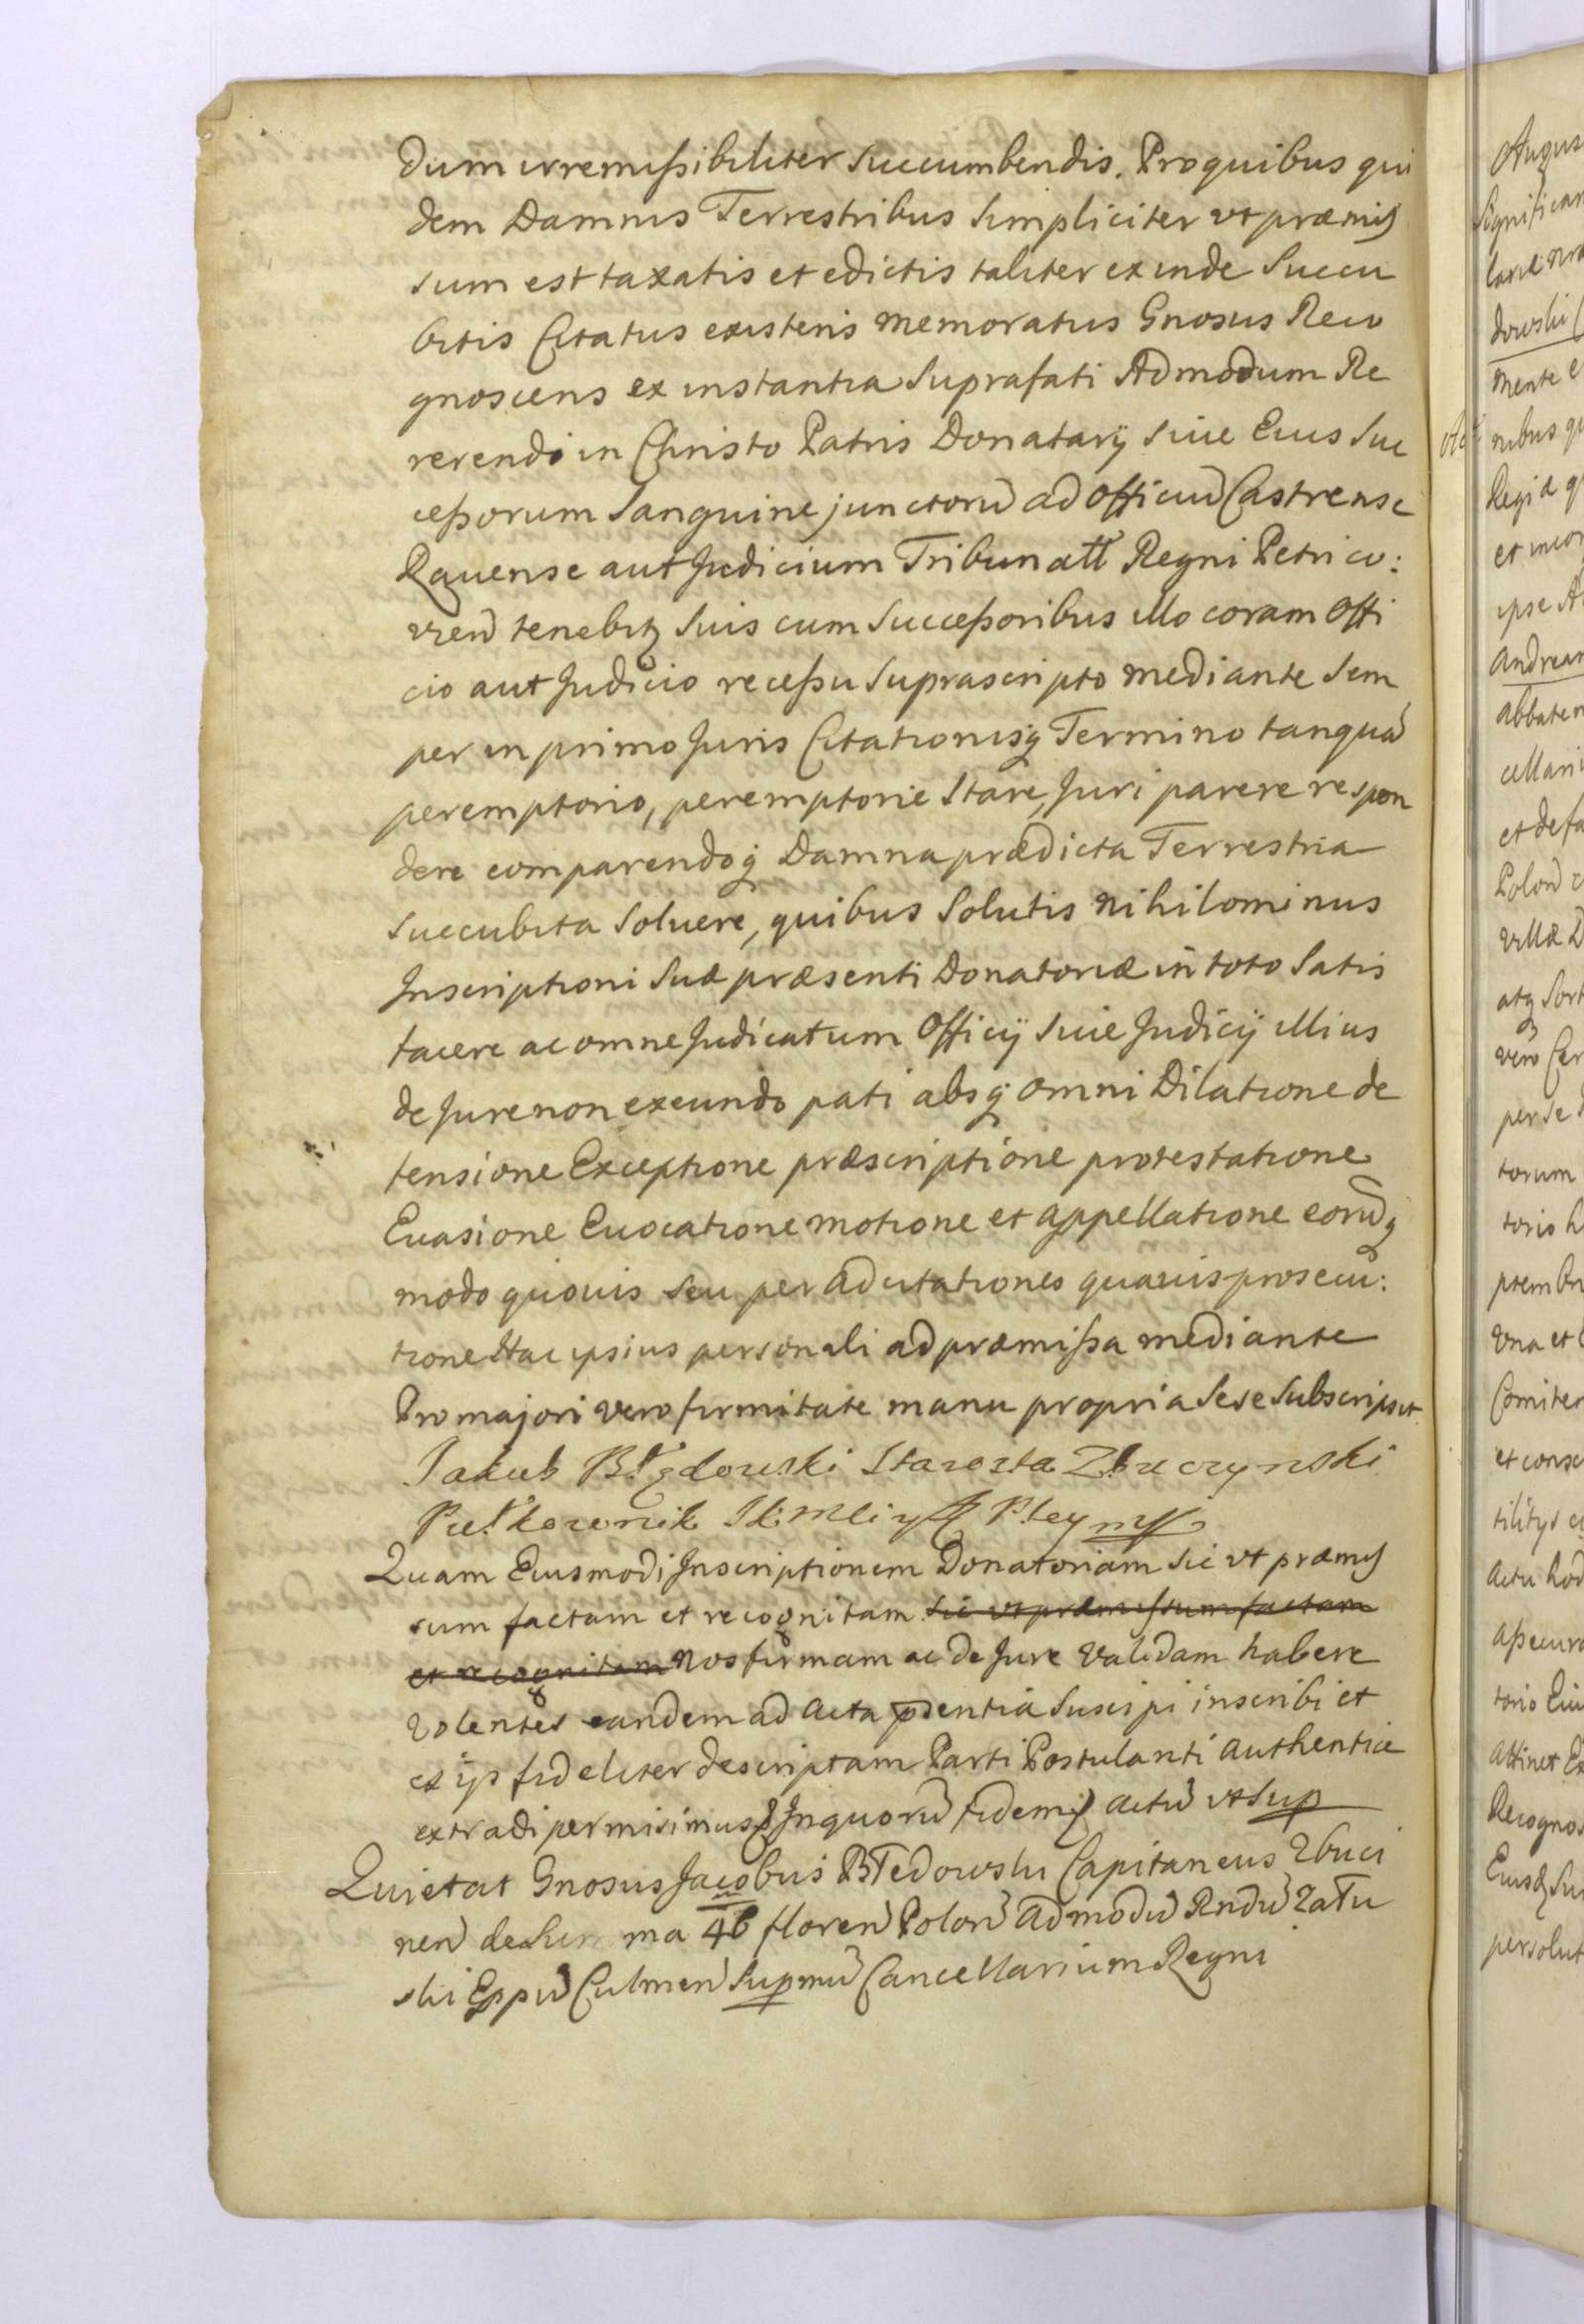 dum irremissibiliter succumbendis. Pro quibus qui
dem Damnis Terrestribus simpliciter vt præmis
sum est taxatis et edictis taliter exinde succu
bitis Citatus existens memoratus Gnosus Reco
gnoscens ex instantia Suprafati Admodum Re
verendi in Christo Patris Donatarÿ siue Eius Suc
cessorum Sanguine junctorũ ad officiũ Castrense
Rauense aut Judicium Tribunatt Regni Petrico:
vień tenebitz suis cum Successoribus illo coram Offi
cio aut Judicio recessu suprascripto mediante sem
per in primo Juris Citationisq Termino tanquã
peremptorio, peremptorie stare, Juri parere respon
dere comparendoq Damna prædicta Terrestria
succubita soluere, quibus solutis nihilominus
Inscriptioni suæ præsenti Donatoriæ in toto satis
facere ac omne Judicatum Officÿ siue Judicÿ illius
de Jure non exeundo pati absq omni Dilatione de
fensione Exceptione præscriptione protestatione
Euasione Euocatione motione et appellatione eorũq
modo quouis seu per adcitationes quasuis prosecu:
tione Hac ipsius personali ad præmissa mediante
Pro majori vero firmitate manu propria sese subscripsit
Jakub Błędowski Starosta Zbuczynski
Pułkownik
Quam Eiusmodi Inscriptionem Donatoriam sic vt præmis
sum factam et recognitam sic vt præmissum factam
et recognitam nos firmam ac de Jure validam habere
volentes eandem ad Acta pñtia suscipi inscribi et
ex ijs fideliter descriptam Parti Postulanti authentice
extradi permisimus In quorũ fidem Actũ vt Sup
Quietat Gnosus Jacobus Błedowski Capitaneus Zbuci
neń de Sum ma floreń Poloń admodũ Rndũ Zału
ski Eppũ Culmeń Supmũ Cancellarium Regni